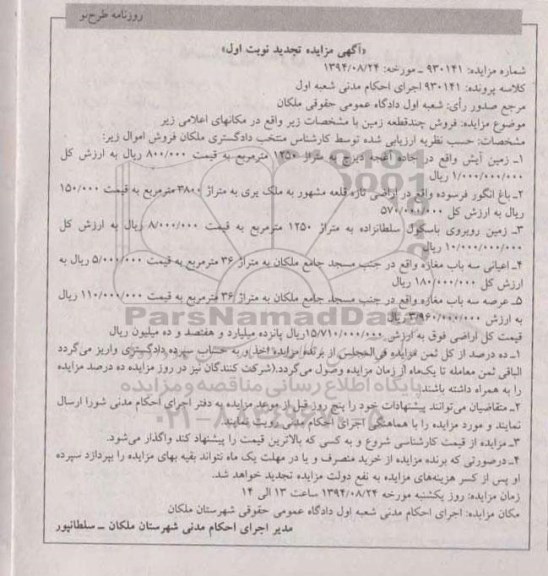 روزنامه طرح‌نو
«آگهی مزایده تجدید نوبت اول»
شماره مزایده: ۹۳۰۱۴۱ ـ مورخه: ۱۳۹۴/۰۸/۲۴
کلاسه پرونده: ۹۳۰۱۴۱ اجرای احکام مدنی شعبه اول
مرجع صدور رأی: شعبه اول دادگاه عمومی حقوقی ملکان
موضوع مزایده: فروش چندقطعه زمین با مشخصات زیر واقع در مکانهای اعلامی زیر
مشخصات: حسب نظریه ارزیابی شده توسط کارشناس منتخب دادگستری ملکان فروش اموال زیر:
۱ـ زمین آیش واقع در جاده آغجه دیزج به متراژ ۱۲۵۰ مترمربع به قیمت ۸۰۰/۰۰۰ ریال به ارزش کل
۱/۰۰۰/۰۰۰/۰۰۰ ریال
۲ـ باغ انگور فرسوده واقع در اراضی تازه قلعه مشهور به ملک یری به متراژ ۳۸۰۰ مترمربع به قیمت ۱۵۰/۰۰۰
ریال به ارزش کل ۵۷۰/۰۰۰/۰۰۰
۳ـ زمین روبروی باسکول سلطانزاده به متراژ ۱۲۵۰ مترمربع به قیمت ۸/۰۰۰/۰۰۰ ریال به ارزش کل
۱۰/۰۰۰/۰۰۰/۰۰۰ ریال
۴ـ اعیانی سه باب مغازه واقع در جنب مسجد جامع ملکان به متراژ ۳۶ مترمربع به قیمت ۵/۰۰۰/۰۰۰ ریال به
ارزش کل ۱۸۰/۰۰۰/۰۰۰ ریال
۵ـ عرصه سه باب مغازه واقع در جنب مسجد جامع ملکان به متراژ ۳۶ مترمربع به قیمت ۱۱۰/۰۰۰/۰۰۰ ریال
به ارزش ۳/۹۶۰/۰۰۰/۰۰۰ ریال
ParsNamadData
قیمت کل اراضی فوق به ارزش ۱۵/۷۱۰/۰۰۰/۰۰۰ریال پانزده میلیارد و هفتصد و ده میلیون ریال
۱ـ ده درصد از کل ثمن مزایده فی‌المجلس از برنده مزایده اخذ و به حساب سپرده دادگستری واریز می‌گردد
الباقی ثمن معامله تا یک‌ماه از زمان مزایده وصول می‌گردد.(شرکت کنندگان نیز در روز مزایده ده درصد مزایده
را به همراه داشته باشند)
پایگاه اطلاع رسانی مناقصه و مزایده
۲ـ متقاضیان می‌توانند پیشنهادات خود را پنج روز قبل از موعد مزایده به دفتر اجرای احکام مدنی شورا ارسال
نمایند و مورد مزایده را با هماهنگی اجرای احکام مدنی رویت نمایند
۰۲۱-۸۸۳۴۹۶۷۰-۵
۳ـ مزایده از قیمت کارشناسی شروع و به کسی که بالاترین قیمت را پیشنهاد کند واگذار می‌شود.
۴ـ درصورتی که برنده مزایده از خرید منصرف و یا در مهلت یک ماه نتواند بقیه بهای مزایده را بپردازد سپرده
او پس از کسر هزینه‌های مزایده به نفع دولت مزایده تجدید خواهد شد.
زمان مزایده: روز یکشنبه مورخه ۱۳۹۴/۰۸/۲۴ ساعت ۱۳ الی ۱۴
مکان مزایده: اجرای احکام مدنی شعبه اول دادگاه عمومی حقوقی شهرستان ملکان
مدیر اجرای احکام مدنی شهرستان ملکان ـ سلطانپور